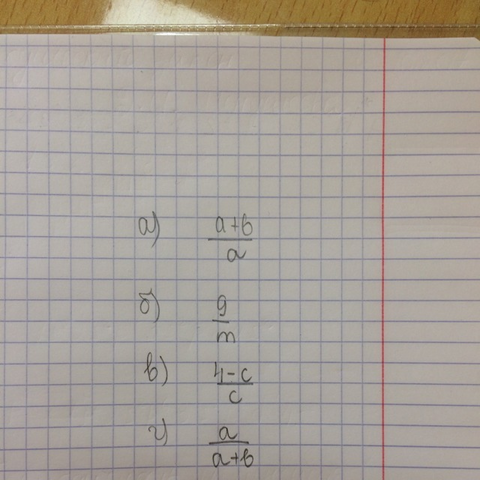 а) a+b/a
б) 9/m
в) 4-c/c
г) a/a+b